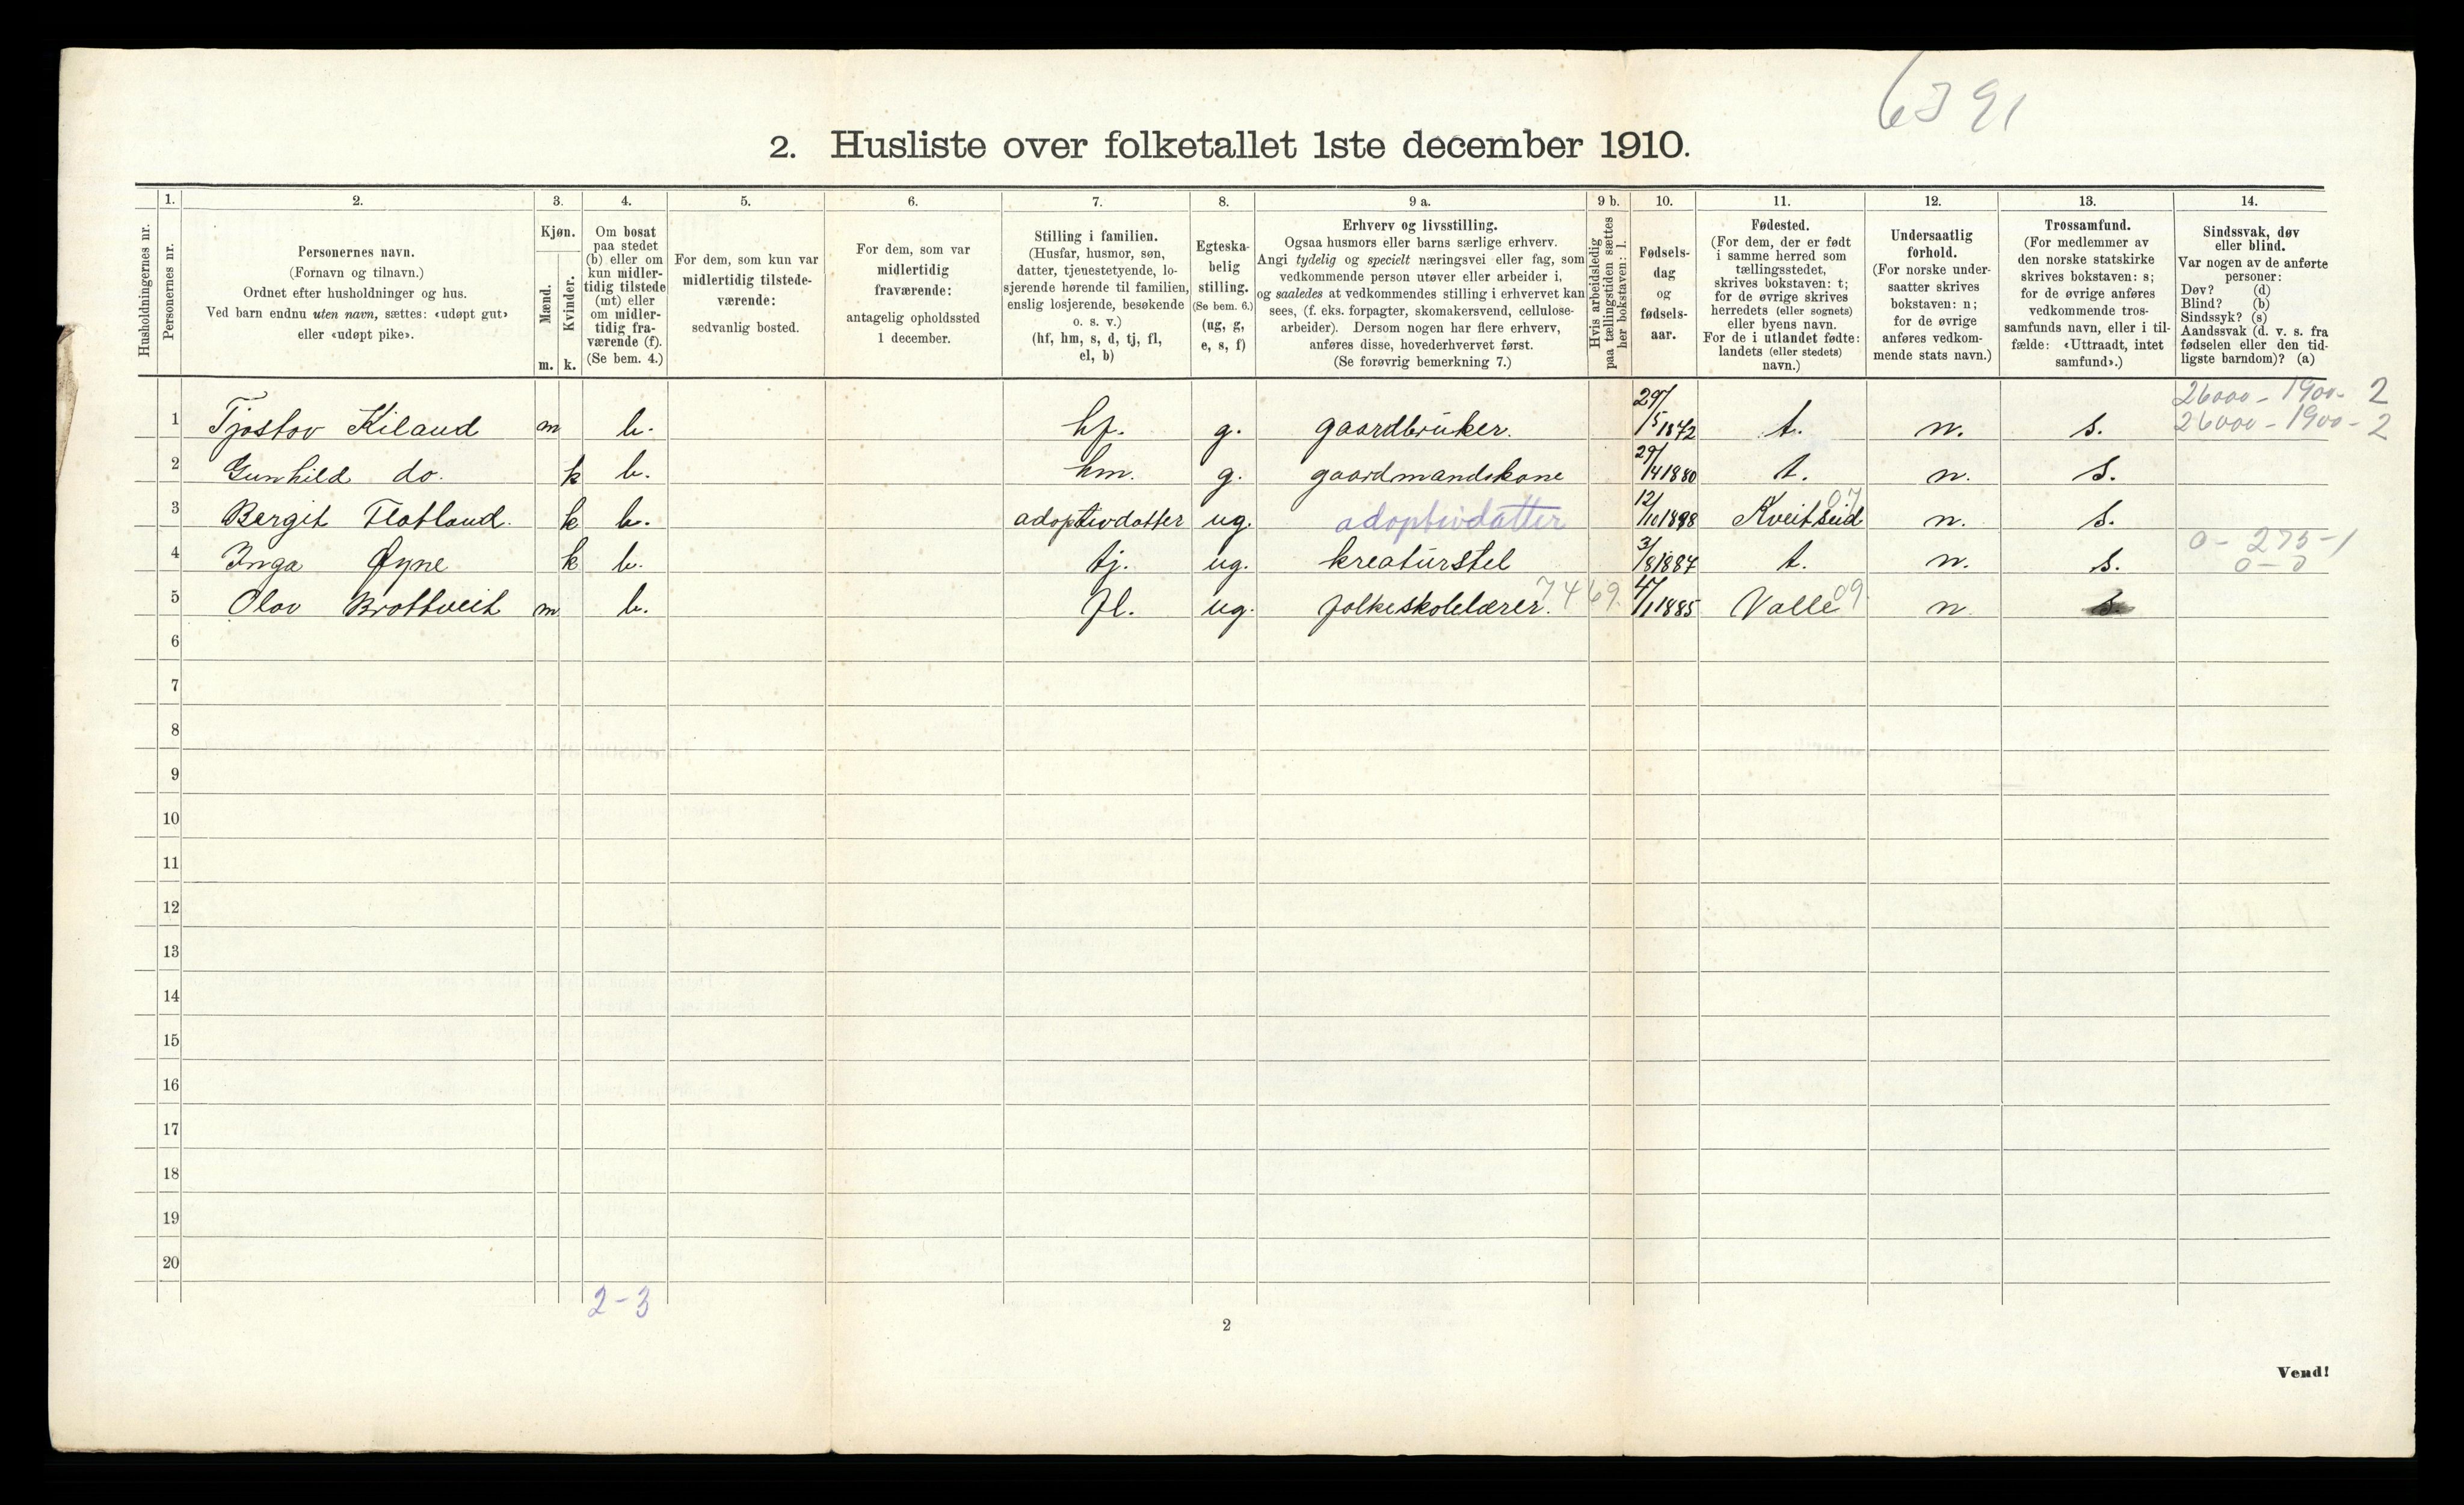 6391
2. Husliste over folketallet 1ste december 1910.
Husholdningernes nr.
1.
Personernes nr.
2.
Personernes navn.
(Fornavn og tilnavn.)
Ordnet efter husholdninger og hus.
Ved barn endnu uten navn, sættes: «udøpt gut»
eller «udøpt pike».
3.
Kjøn.
Mænd.
Kvinder.
m. k.
4.
Om bosat
paa stedet
(b) eller om
kun midler-
tidig tilstede
(mt) eller
om midler-
tidig fra-
værende (f).
(Se bem. 4.)
5.
For dem, som kun var
midlertidig tilstede-
værende:
sedvanlig bosted.
6.
For dem, som var
midlertidig
fraværende:
antagelig opholdssted
1 december.
7.
Stilling i familien.
(Husfar, husmor, søn,
datter, tjenestetyende, lo-
sjerende hørende til familien,
enslig losjerende, besøkende
o. s. v.)
(hf, hm, s, d, tj, fl,
el, b)
8.
Egteska-
belig
stilling.
(Se bem. 6.)
(ug, g,
e, s, f)
9 a.
Erhverv og livsstilling.
Ogsaa husmors eller barns særlige erhverv.
Angi tydelig og specielt næringsvei eller fag, som
vedkommende person utøver eller arbeider i,
og saaledes at vedkommendes stilling i erhvervet kan
sees, (f. eks. forpagter, skomakersvend, cellulose-
arbeider). Dersom nogen har flere erhverv,
anføres disse, hovederhvervet først.
(Se forøvrig bemerkning 7.)
9 b.
Hvis arbeidsledig
paa tællingstiden sættes
her bokstaven: l.
10.
Fødsels-
dag
og
fødsels-
aar.
11.
Fødested.
(For dem, der er født
i samme herred som
tællingsstedet,
skrives bokstaven: t;
for de øvrige skrives
herredets (eller sognets)
eller byens navn.
For de i utlandet fødte:
landets (eller stedets)
navn.)
12.
Undersaatlig
forhold.
(For norske under-
saatter skrives
bokstaven: n;
for de øvrige
anføres vedkom-
mende stats navn.)
13.
Trossamfund.
(For medlemmer av
den norske statskirke
skrives bokstaven: s;
for de øvrige anføres
vedkommende tros-
samfunds navn, eller i til-
fælde: «Uttraadt, intet
samfund».)
14.
Sindssvak, døv
eller blind.
Var nogen av de anførte
personer:
Døv? (d)
Blind? (b)
Sindssyk? (s)
Aandssvak (d. v. s. fra
fødselen eller den tid-
ligste barndom)? (a)
26000 - 1900 - 2
1 Tjostov Kiland m b. hf. g. gaardbruker. 29/5 1872 t. n. s. 26000 - 1900 - 2
2 Gunhild do. k b. hm. g. gaardmandskone 1880 t. n. s.
3 Bergit Flatland. k b. adoptivdatter ug. adoptivdatter 12/10 1898 Kveitseid 07 n. s.
4 Inga Øyne k b. tj. ug. kreaturstel 3/8 1887 t. n. s. 0 - 275 - 1
0 - 0
5 Olav Brottveit m b. fl. ug. folkeskolelærer. 7469. 1885 Valle 09. n. s.
6
7
8
9
10
11
12
13
14
15
16
17
18
19
20
2 - 3
2
Vend!